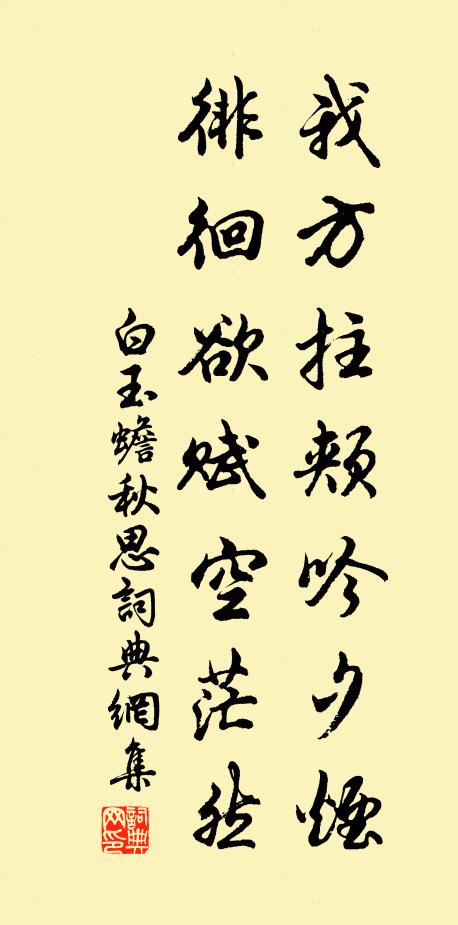 我方拄颊吟夕烟
徘徊欲赋空茫然
白玉蟾秋思詞典網集
詞典网印